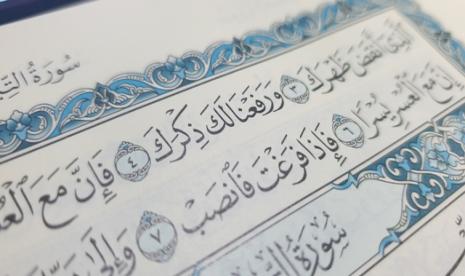 سُورَةُ
ٱلَّذِىٓ أَنقَضَ ظَهْرَكَ ٣ وَرَفَعْنَا لَكَ ذِكْرَكَ ٤ فَإِنَّ مَعَ
إِنَّ مَعَ ٱلْعُسْرِ يُسْرًا ٦ فَإِذَا فَرَغْتَ فَٱنصَبْ ٧ وَإِلَىٰ
سُورَةُ